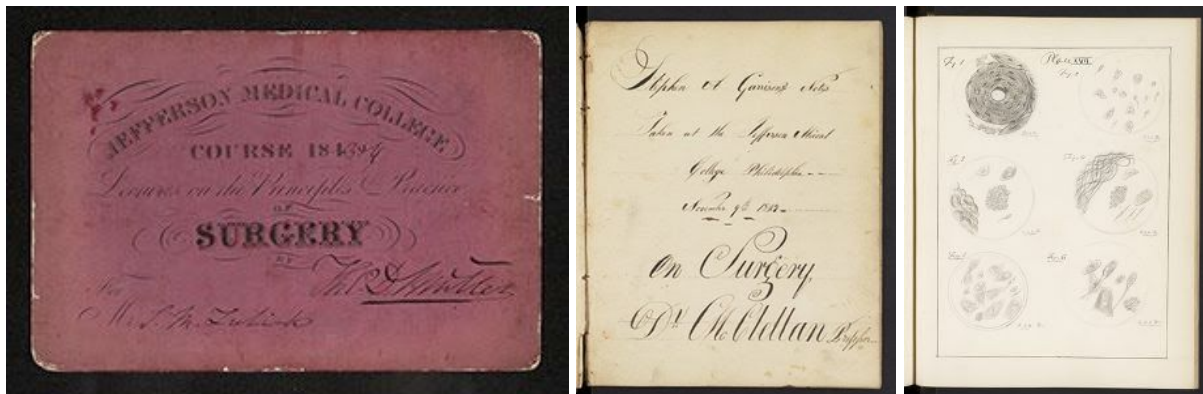 JEFFERSON MEDICAL COLLEGE
COURSE 1843-4
Lectures on the Principles & Practice
OF
SURGERY
BY
Tho. D. Mütter
For
Mr. S. M.
Stephen A Garrisons Notes
Taken at the Jefferson Medical
College Philadelphia
November 9th
On Surgery
Dr McClellan Professor
Plate XVII
Fig 1
Fig 2
Fig 3
Fig 4
Fig 5
Fig 6